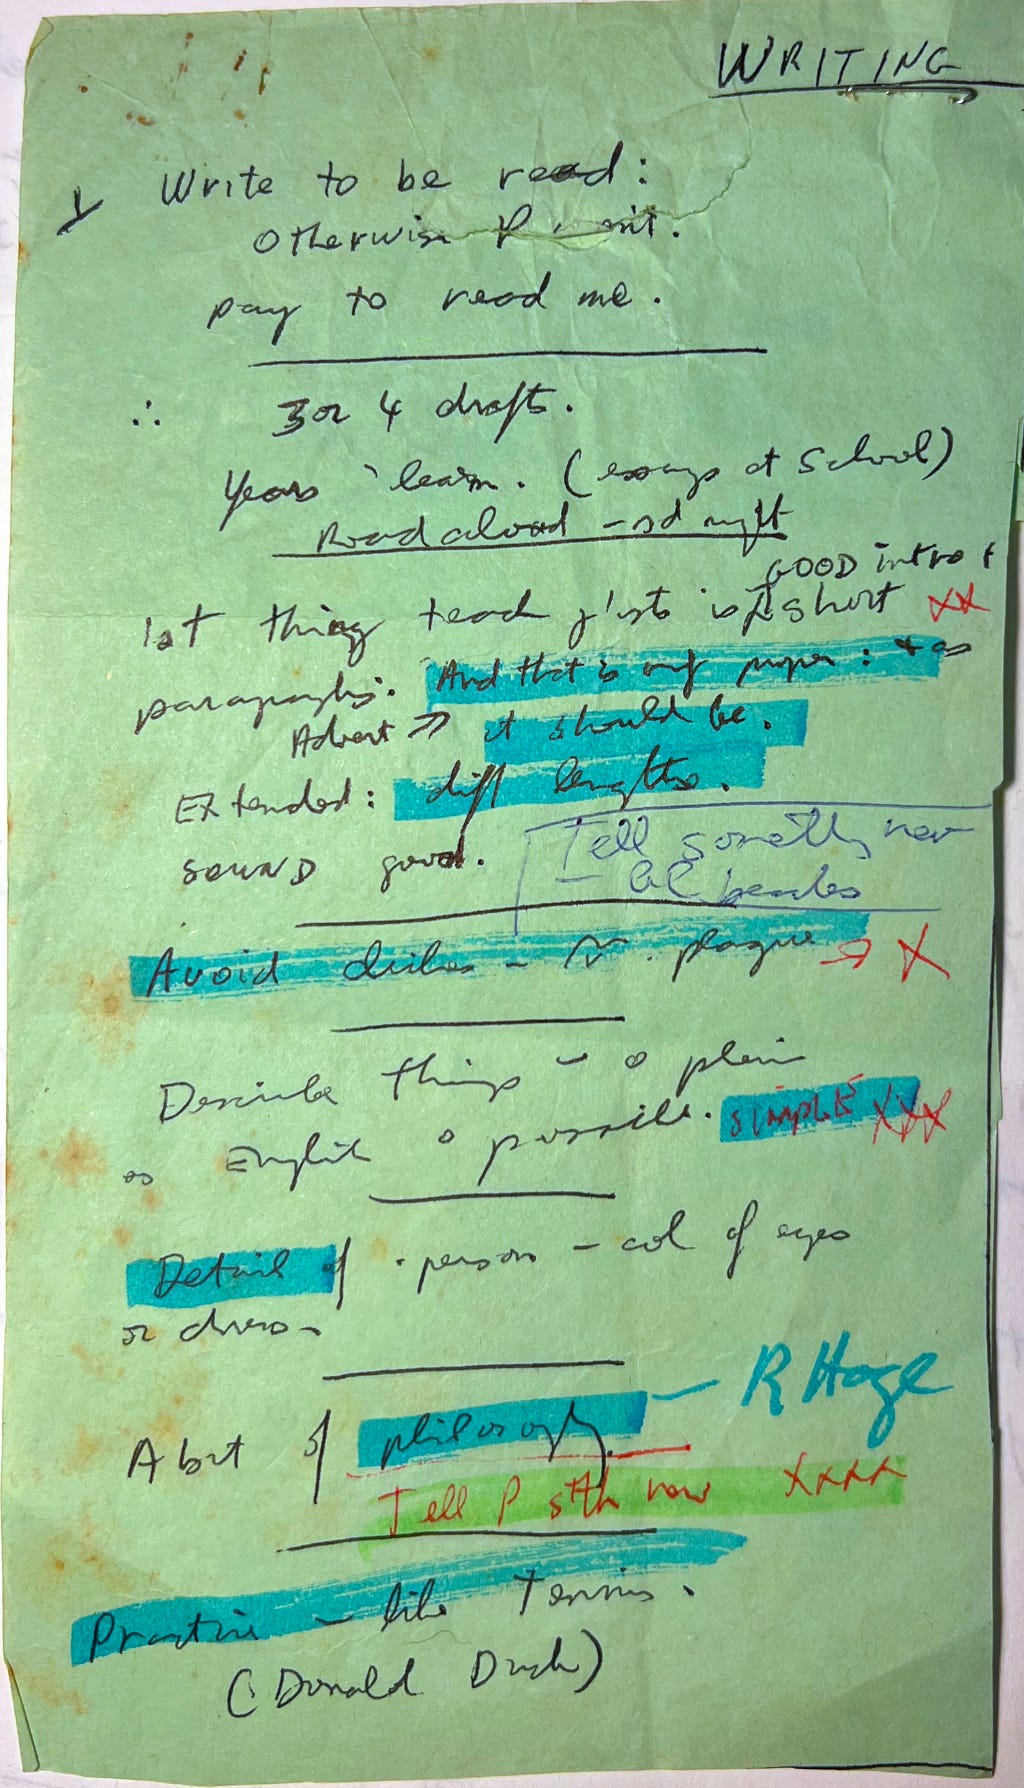 WRITING
Write to be read:
Otherwise P
pay to read me.
∴ 3 or 4 drafts.
Years learn. (essays at School)
Read aloud -
GOOD intro +
1st thing teach j'ists is short XX
paragraphs. And that is my paper: + as
Advert it should be.
Extended: diff lengths.
SOUND good.
Tell someth new
Avoid cliches - plague X
Describe things - plain
as English o possible. SIMPLE XXX
Detail of person - col of eyes
or dress -
A bit of philosophy - R Hoge
Tell P s'th new XXXX
Practise - like Tennis.
(Donald Duck)